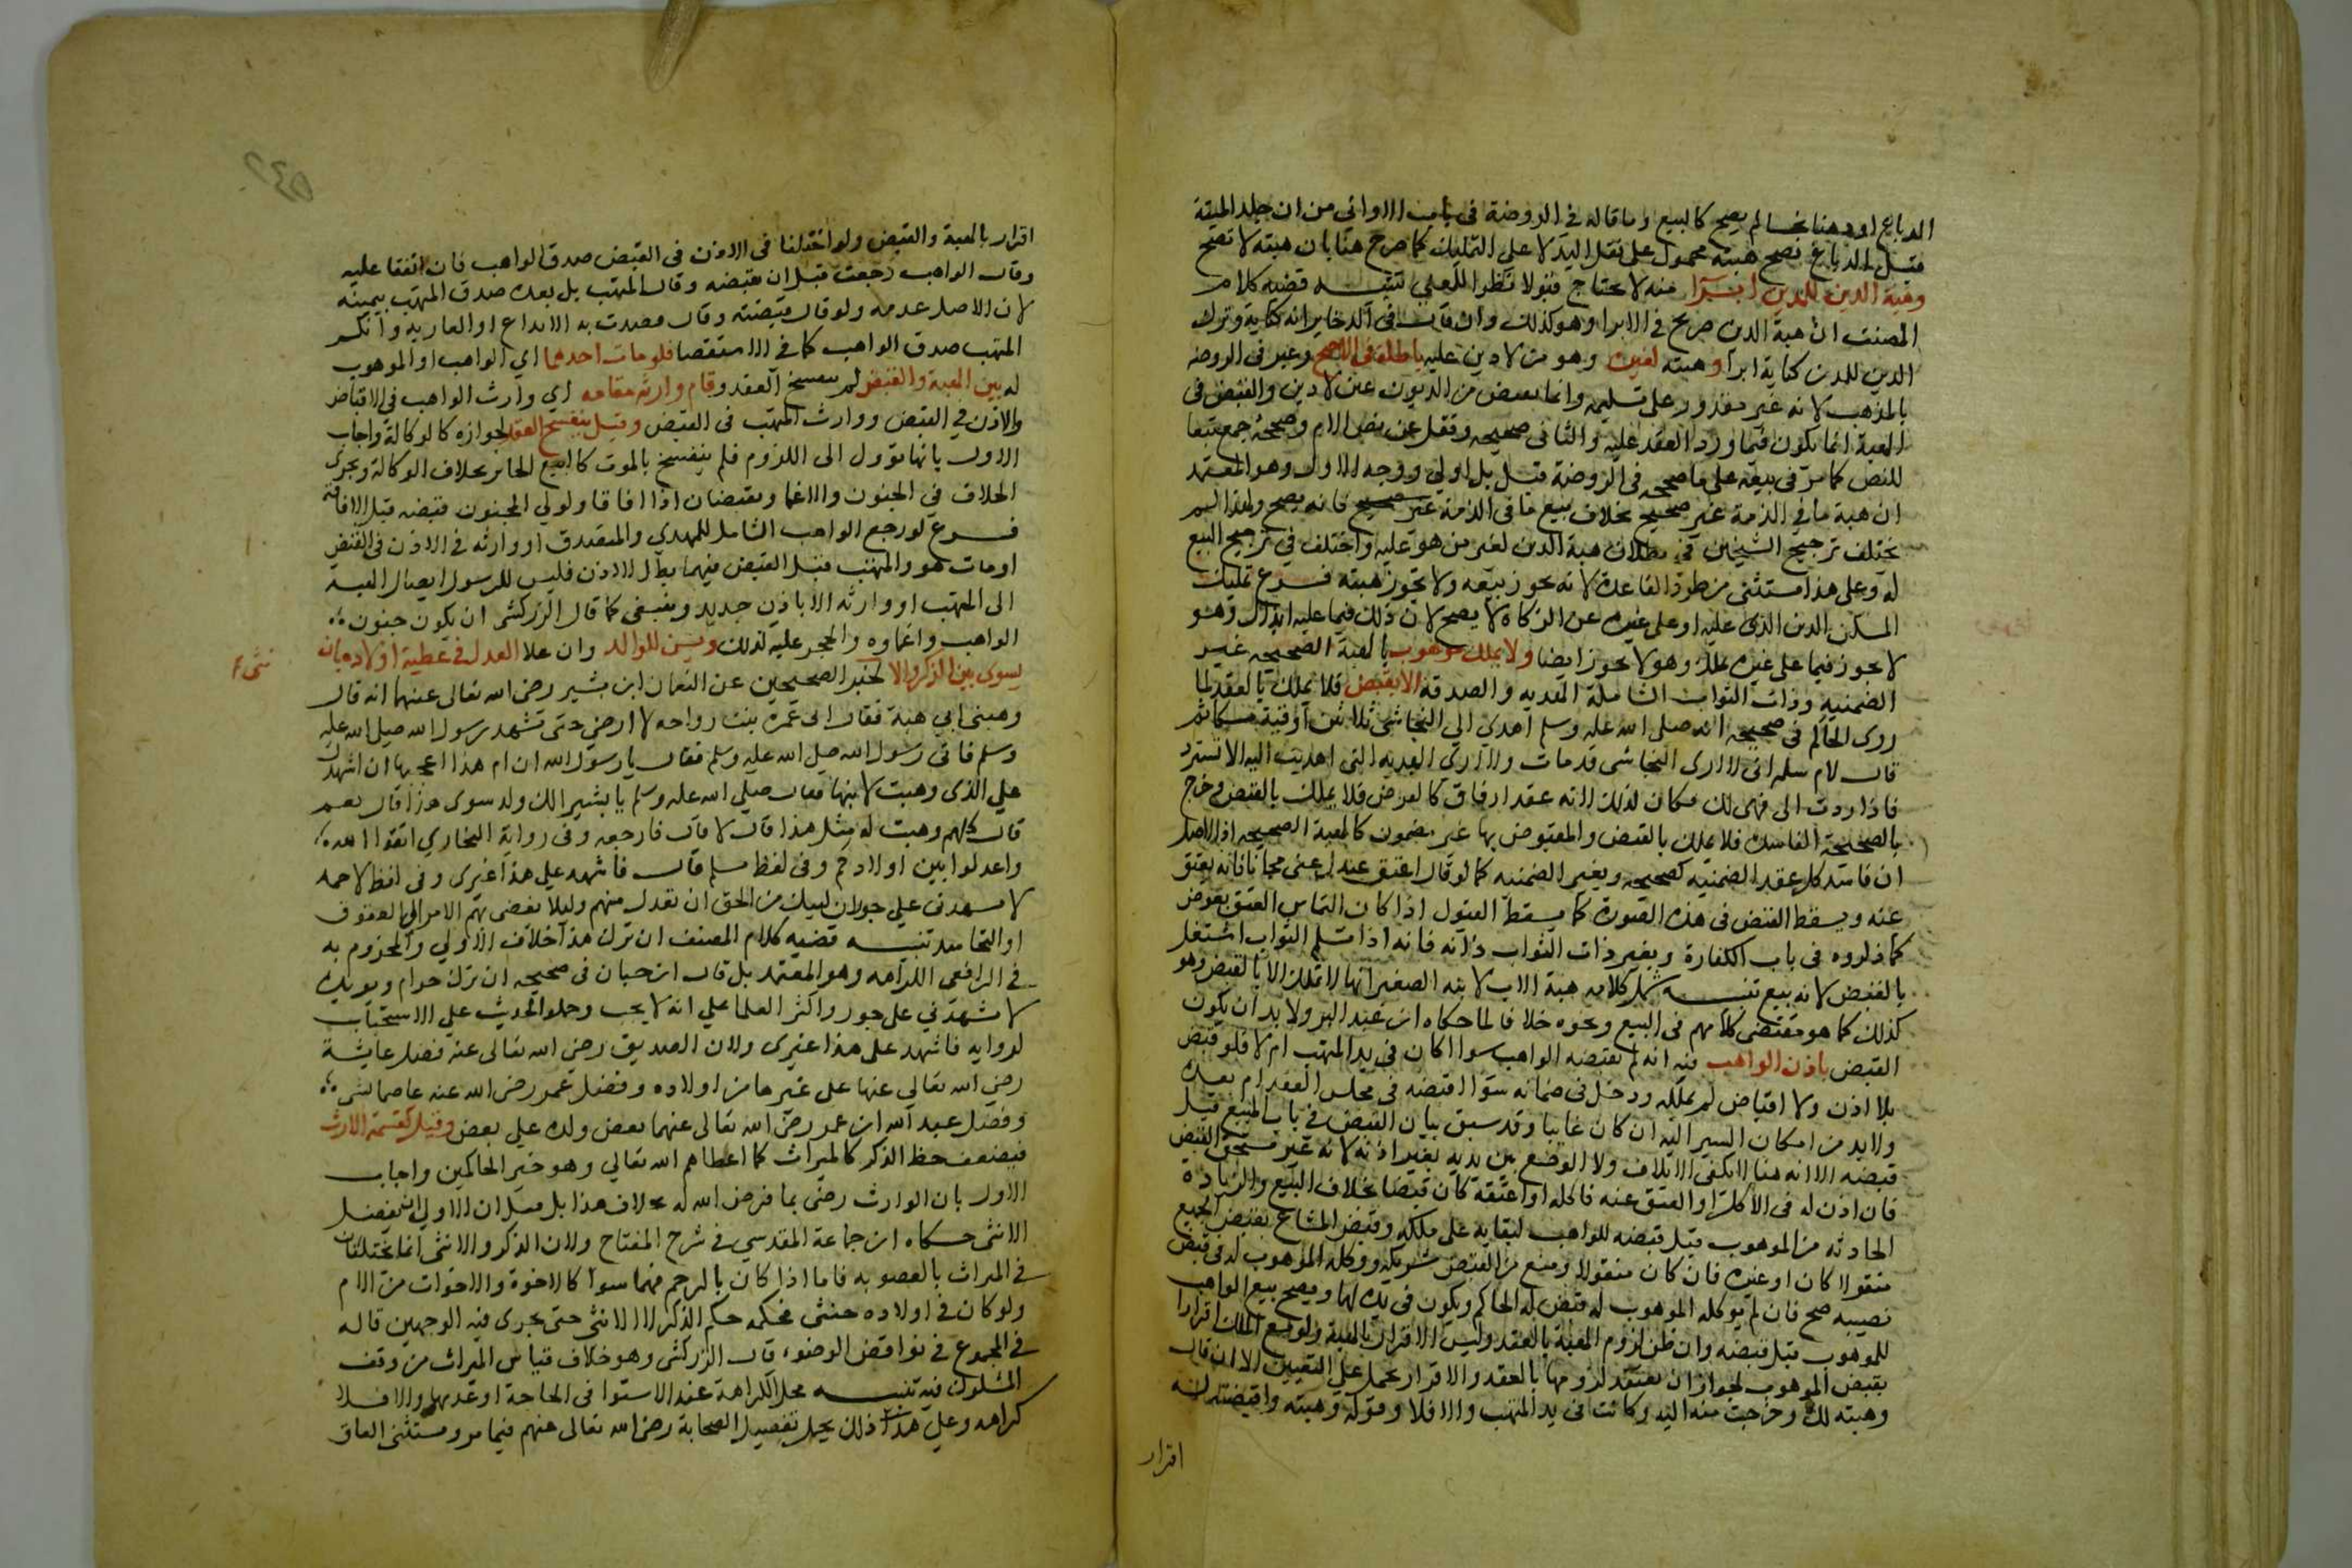 الدباغ او دهنا نجسا لم يصح كالبيع وما قاله في الروضة في باب الاواني من ان جلد الميتة
قبل الدباغ تصح هبته محمول على نقل اليد لا على التمليك كما صرح هنا بان هبته لا تصح
وهبة الدين للمدين ابرآ منه لا يحتاج قبولا نظرا للمعنى تنبيه قضية كلام
المصنف ان هبة الدين صريح في الابرا وهو كذلك وان قال في الذخاير انه كناية وترك
الدين للمدين كناية ابرا وهبته لغيره وهو من لا دين عليه باطلة في الاصح وعبر في الروضة
بالمذهب لانه غير مقدور على تسليمه وانما يقبض من الديون عين لا دين والقبض في
الهبة انما يكون فيما ورد العقد عليه والثاني صحيحه ونقل عن نص الام وصححه جمع تبعا
للنص كما مر في بيعه على ما صححه في الروضة قيل بل اولى ووجه الاول وهو المعتمد
ان هبة ما في الذمة غير صحيح بخلاف بيع ما في الذمة فانه يصح ولهذا لم
يختلف ترجيح الشيخين في بطلان هبة الدين لغير من هو عليه واختلف في ترجيح البيع
له وعلى هذا مستثنى من طرد القاعدة لانه يجوز بيعه ولا تجوز هبته فرع تمليك
المسكن الدين الذي عليه او على غيره عن الزكاة لا يصح لان ذلك فيما عليه ابدال وهو
لا يجوز فيما على غيره تمليك وهو لا يجوز ايضا ولا يملك موهوب بالهبة الصحيحه غير
الضمنيه وذات الثواب الشاملة الهديه والصدقة الا بقبض فلا يملك بالعقد لما
روى الحاكم في صحيحه انه صلى الله عليه وسلم اهدى الى النجاشي ثلاثين اوقية مسكا ثم
قال لام سلمه اني لا ارى النجاشي قد مات ولا ارى الهديه التي اهديت اليه الا تسترد
فاذا ردت الي فهي لك فكان كذلك لانه عقد ارفاق كالقرض فلا يملك بالقبض وخرج
بالصحيحة الفاسدة فلا يملك بالقبض والمقبوض بها غير مضمون كالهبة الصحيحه اذ الاصل
ان فاسد كل عقد الضمنيه كصحيحه وبغير الضمنيه كما لو قال اعتق عبدك عني مجانا فانه يعتق
عنه ويسقط القبض في هذه الصورة كما يسقط القبول اذا كان التماس العتق بعوض
كما ذكروه في باب الكفارة وبغير ذات الثواب ذاته فانه اذا سلم الثواب اشتغل
بالقبض لانه بيع تنبيه شمل كلامه هبة الاب لابنه الصغير انها لا تملك الا بالقبض وهو
كذلك كما هو مقتضى كلامهم في البيع ونحوه خلافا لما حكاه ابن عبد البر ولا بد ان يكون
القبض باذن الواهب فيه انه لم يقبضه الواهب سوا اكان في يد المتهب ام لا فلو قبض
بلا اذن ولا اقباض لم يملكه ودخل في ضمانه سوا اقبضه في مجلس العقد ام بعده
ولا بد من امكان السير اليه ان كان غايبا وقد سبق بيان القبض في باب المبيع قبل
قبضه الا انه هنا لا يكفي الاتلاف ولا الوضع بين يديه بغير اذنه لانه غير مستحق القبض
فان اذن له في الاكل او العتق عنه فاكله او اعتقه كان قبضا بخلاف البيع والزيادة
الحادثه من الموهوب قبل قبضه للواهب لبقايه على ملكه وقبض المشاع بقبض الجميع
منقولا كان او غيره فان كان منقولا ومنع من القبض شريكه ووكله الموهوب له في قبض
نصيبه صح فان لم يوكله الموهوب له قبض له الحاكم ويكون في يده لهما ويصح بيع الواهب
للموهوب قبل قبضه وان ظن لزوم الهبة بالعقد وليس الاقرار بالهبة ولو مع الملك اقرارا
بقبض الموهوب لجواز ان يعتقد لزومها بالعقد والاقرار يحمل على اليقين الا ان قال
وهبته لك وخرجت منه اليه وكانت في يد المتهب والا فلا وقوله وهبته واقبضته له
اقرار
اقرار بالهبة والقبض ولو اختلفا في الاذن في القبض صدق الواهب فان اتفقا عليه
وقال الواهب رجعت قبل ان يقبضه وقال المتهب بل بعده صدق المتهب بيمينه
لان الاصل عدمه ولو قال قبضته وقال قصدت به الايداع او العارية وانكر
المتهب صدق الواهب كما في الاستقصا فلو مات احدهما اي الواهب او الموهوب
له بين الهبة والقبض لم ينفسخ العقد وقام وارثه مقامه اي وارث الواهب في الاقباض
والاذن في القبض ووارث المتهب في القبض وقيل ينفسخ العقد لجوازه كالوكالة واجاب
الاول بانها تؤول الى اللزوم فلم ينفسخ بالموت كالبيع الجائز بخلاف الوكالة ويجري
الخلاف في الجنون والاغما ويقبضان اذا افاقا ولولي المجنون قبضه قبل الافاقة
فرع لو رجع الواهب الشامل للمهدي والمتصدق او وارثه في الاذن في القبض
او مات هو والمتهب قبل القبض فيهما بطل الاذن فليس للرسول ايصال الهبة
الى المتهب او وارثه الا باذن جديد وينبغي كما قال الزركشي ان يكون جنون
الواهب واغماوه والحجر عليه كذلك ويسن للوالد وان علا العدل في عطية اولاده بان
يسوي بين الذكر والا نثى لخبر الصحيحين عن النعمان ابن بشير رضي الله تعالى عنهما انه قال
وهبني ابي هبة فقال امي عمرة بنت رواحه لا ارضى حتى تشهد رسول الله صلى الله عليه
وسلم فاتى رسول الله صلى الله عليه وسلم فقال يا رسول الله ان ام هذا اعجبها ان اشهدك
على الذي وهبت لابنها فقال صلى الله عليه وسلم يا بشير الك ولد سوى هذا قال نعم
قال كلهم وهبت له مثل هذا قال لا قال فارجعه وفي رواية البخاري اتقوا الله
واعدلوا بين اولادكم وفي لفظ مسلم قال فاشهد على هذا غيري وفي لفظ لاحمد
لا تشهدني على جور ان لبنيك من الحق ان تعدل بينهم وليلا يفضى بهم الامر الى العقوق
او التحاسد تنبيه قضية كلام المصنف ان ترك هذا خلاف الاولى والمجزوم به
في الرافعي الكراهه وهو المعتمد بل قال ابن حبان في صحيحه ان ترك حرام ويويده
لا تشهدني على جور واكثر العلما على انه لا يجب وحملوا الحديث على الاستحباب
لروايه فاشهد على هذا غيري ولان الصديق رضي الله تعالى عنه فضل عايشة
رضي الله تعالى عنها على غيرها من اولاده وفضل عمر رضي الله عنه عاصما بشي
وفضل عبد الله ابن عمر رضي الله تعالى عنهما بعض ولده على بعض وقيل كقسمة الارث
فيضعف حظ الذكر كالميراث كما اعطاهم الله تعالى وهو خير الحاكمين واجاب
الاول بان الوارث رضي بما فرض الله له بخلاف هذا بل قيل ان الاولى ان يفضل
الانثى حكاه ابن جماعة المقدسي في شرح المفتاح ولان الذكر والانثى انما يختلفان
في الميراث بالعصوبه فاما اذا كان بالرحم فهما سوا كالاخوة والاخوات من الام
ولو كان في اولاده خنثى فحكمه حكم الذكر لا الانثى حتى يجرى فيه الوجهين قاله
في المجموع في نواقض الوضوء قال الزركشي وهو خلاف قياس الميراث من وقف
المشكوك فيه تنبيه محل الكراهة عند الاستوا في الحاجة او عدمها والا فلا
كراهه وعلى هذا ذلك يحمل تفضيل الصحابة رضي الله تعالى عنهم فيما مر ويستثنى العاق